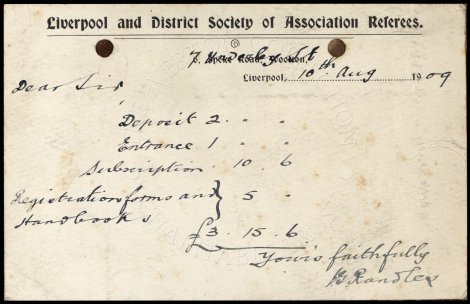 Liverpool and District Society of Association Referees.
7 St
Road,
Liverpool, 10th Aug 1909
Dear Sir
Deposit 2 " "
Entrance 1 " "
Subscription 10. 6
Registration forms and } 5 "
Handbooks
£3. 15. 6
Yours faithfully
Randles